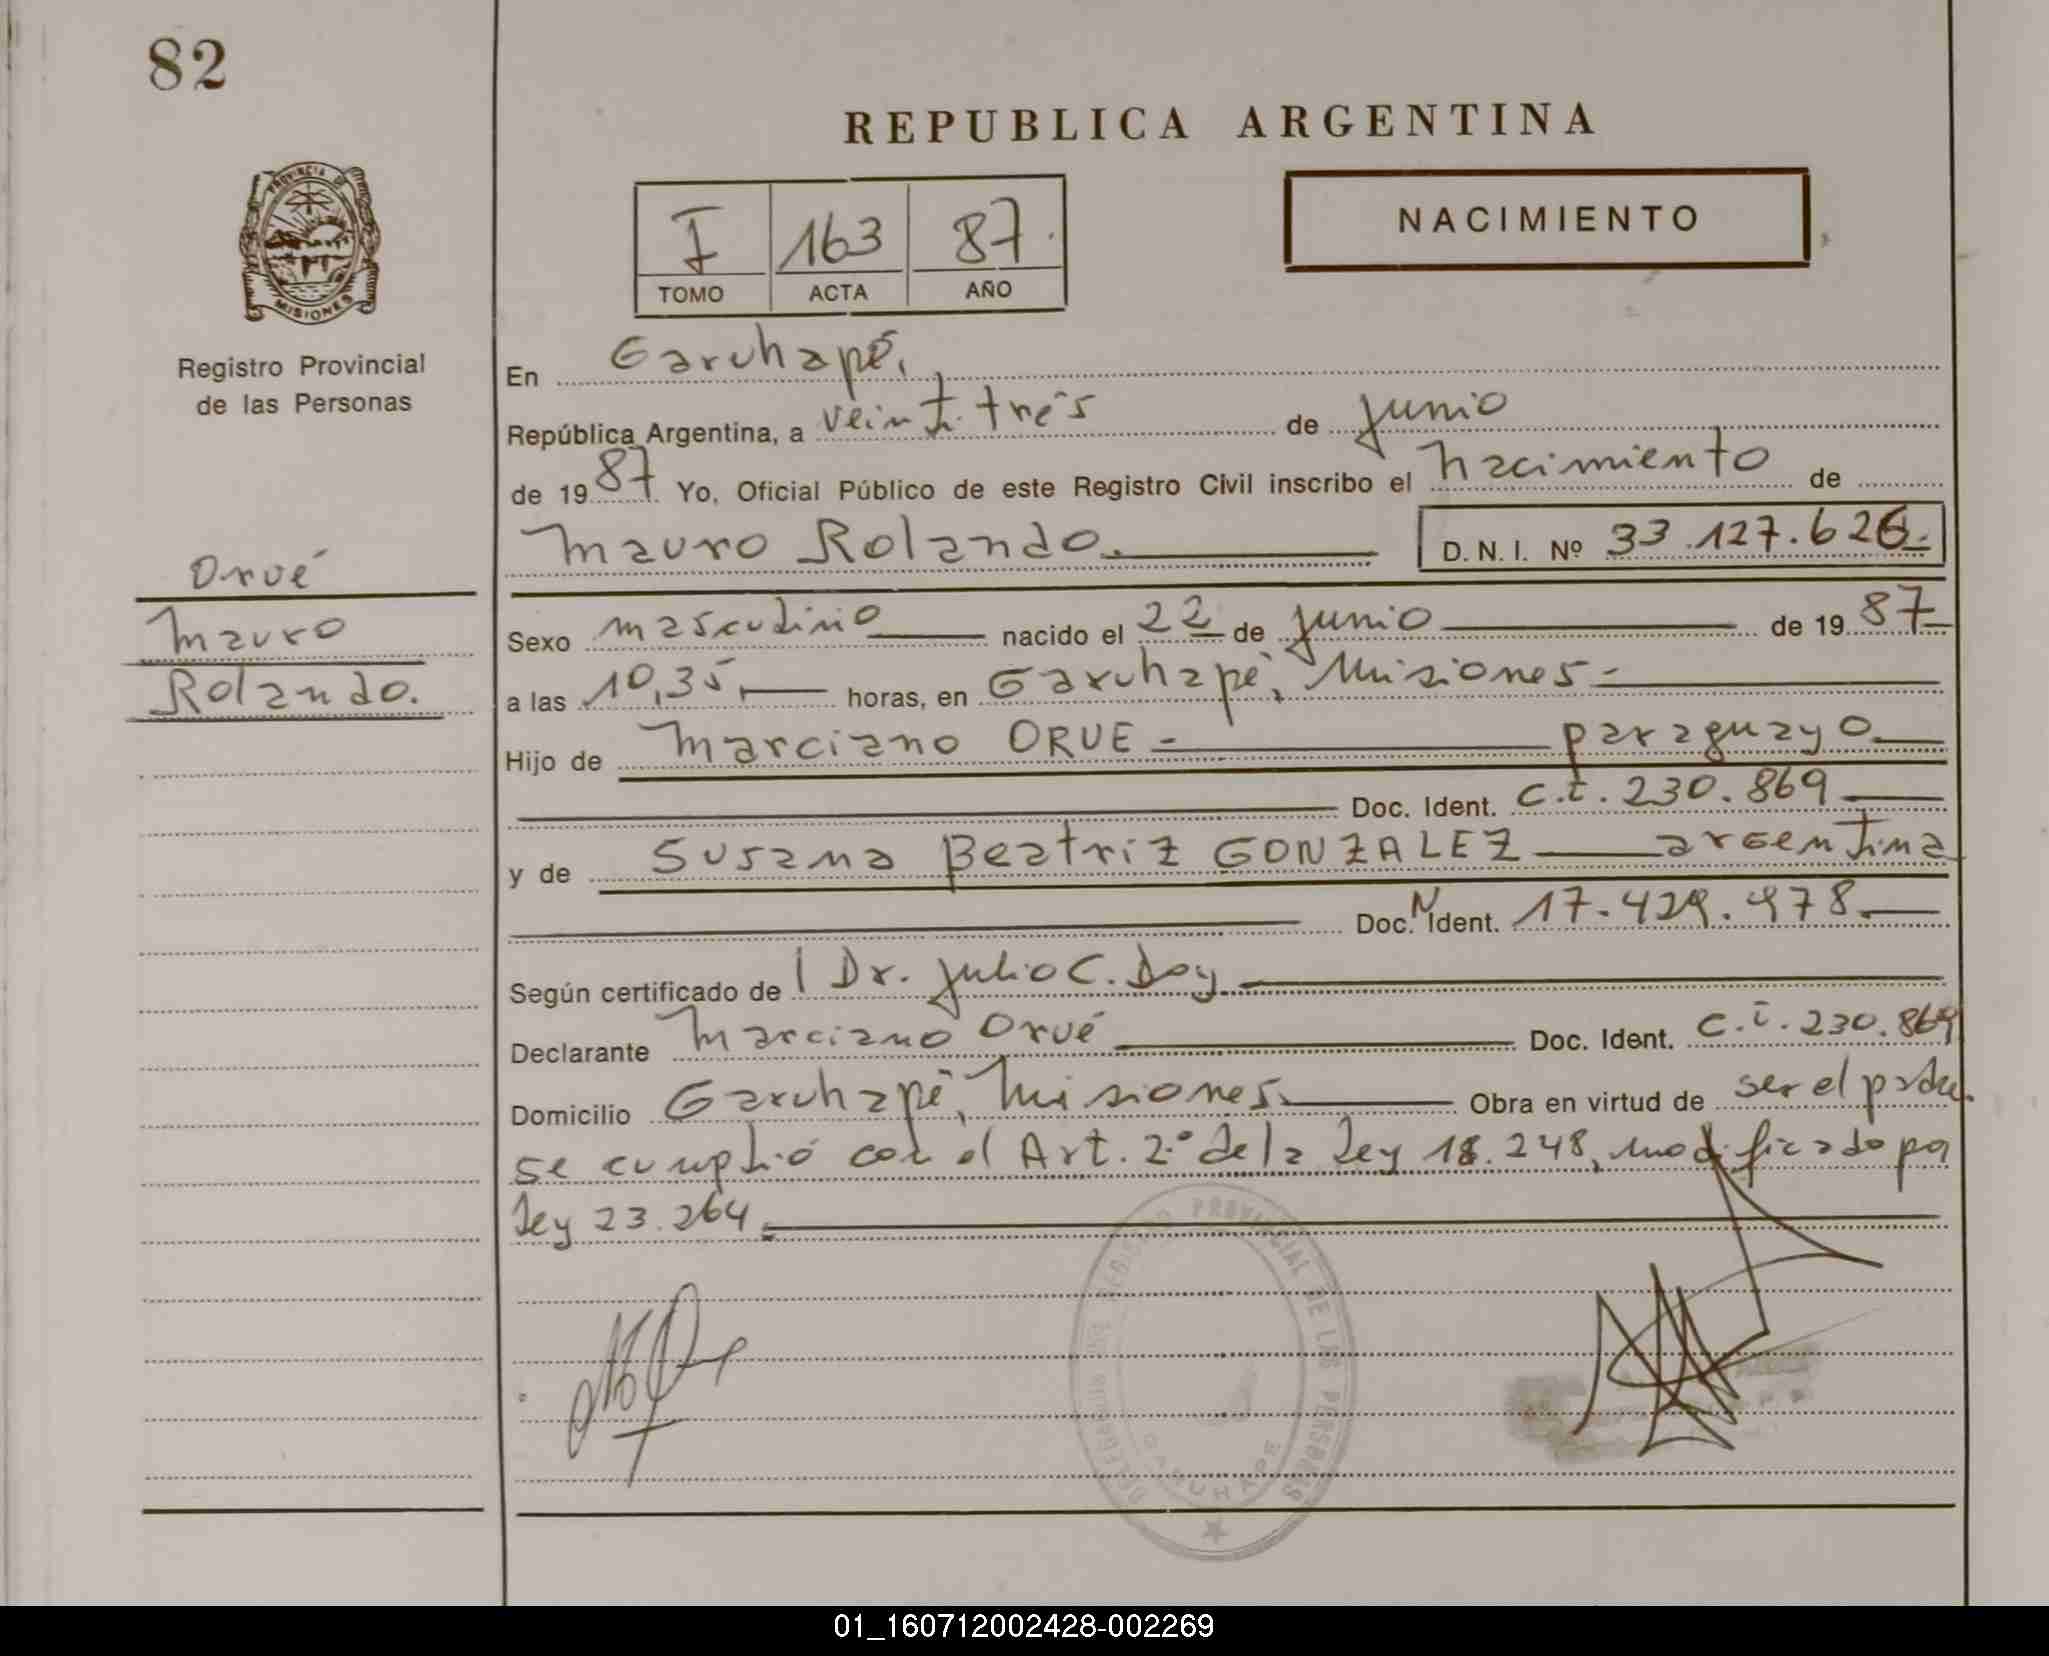 82
REPUBLICA ARGENTINA
PROVINCIA DE
MISIONES
I 163 87.
TOMO ACTA AÑO
NACIMIENTO
Registro Provincial
de las Personas
En Garuhapé,
República Argentina, a veintitrés de junio
de 1987. Yo, Oficial Público de este Registro Civil inscribo el nacimiento de
Mauro Rolando. D. N. I. Nº 33.127.626.
Orvé
Mauro
Rolando.
Sexo masculino nacido el 22 de junio de 1987
a las 10,35, horas, en Garuhapé, Misiones-
Hijo de Marciano ORUE- paraguayo
Doc. Ident. C.I. 230.869
y de Susana Beatriz GONZALEZ argentina
Doc. N Ident. 17.429.978.
Según certificado de l Dr. Julio C. Doy
Declarante Marciano Orué Doc. Ident. C.I. 230.869
Domicilio Garuhapé, Misiones. Obra en virtud de ser el padre.
se cumplió con el Art. 2º de la Ley 18.248, modificado por
Ley 23.264.
REGISTRO PROVINCIAL DE LAS PERSONAS
GARUHAPE
01_160712002428-002269